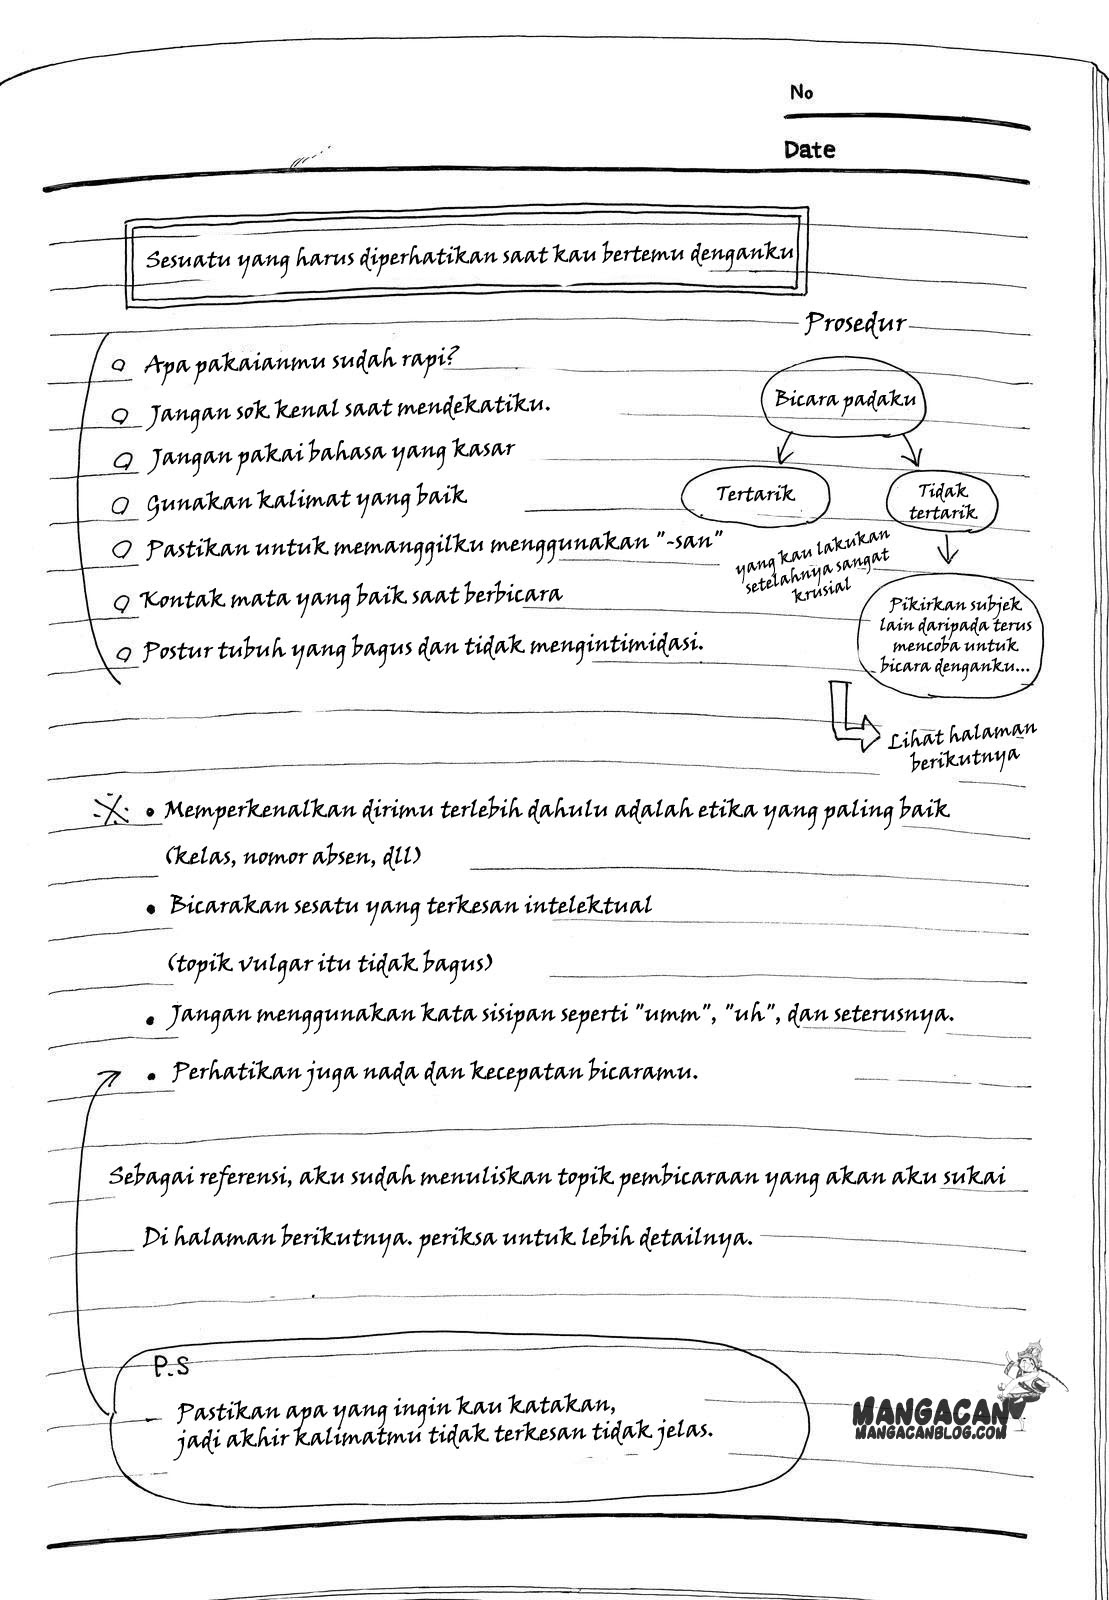 No
Date
Sesuatu yang harus diperhatikan saat kau bertemu denganku
Apa pakaianmu sudah rapi?
Jangan sok kenal saat mendekatiku.
Jangan pakai bahasa yang kasar
Gunakan kalimat yang baik
Pastikan untuk memanggilku menggunakan "-san"
Kontak mata yang baik saat berbicara
Postur tubuh yang bagus dan tidak mengintimidasi.
Prosedur
Bicara padaku
Tertarik
Tidak
tertarik
yang kau lakukan
setelahnya sangat
krusial
Pikirkan subjek
lain daripada terus
mencoba untuk
bicara denganku...
Lihat halaman
berikutnya
• Memperkenalkan dirimu terlebih dahulu adalah etika yang paling baik
(kelas, nomor absen, dll)
• Bicarakan sesatu yang terkesan intelektual
(topik vulgar itu tidak bagus)
• Jangan menggunakan kata sisipan seperti "umm", "uh", dan seterusnya.
• Perhatikan juga nada dan kecepatan bicaramu.
Sebagai referensi, aku sudah menuliskan topik pembicaraan yang akan aku sukai
Di halaman berikutnya. periksa untuk lebih detailnya.
P.S
Pastikan apa yang ingin kau katakan,
jadi akhir kalimatmu tidak terkesan tidak jelas.
MANGACAN
MANGACANBLOG.COM